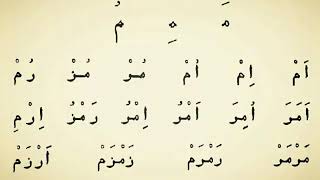 مَ مِ مُ
اَمْ اِمْ اُمْ مُرْ مُزْ رُمْ
اَمَرَ اُمِرَ اَمْرُ اِمْرُ رَمْزُ اِرْمِ
مَرْمَرْ رَمْرَمْ زَمْزَمْ اَرْزَمْ